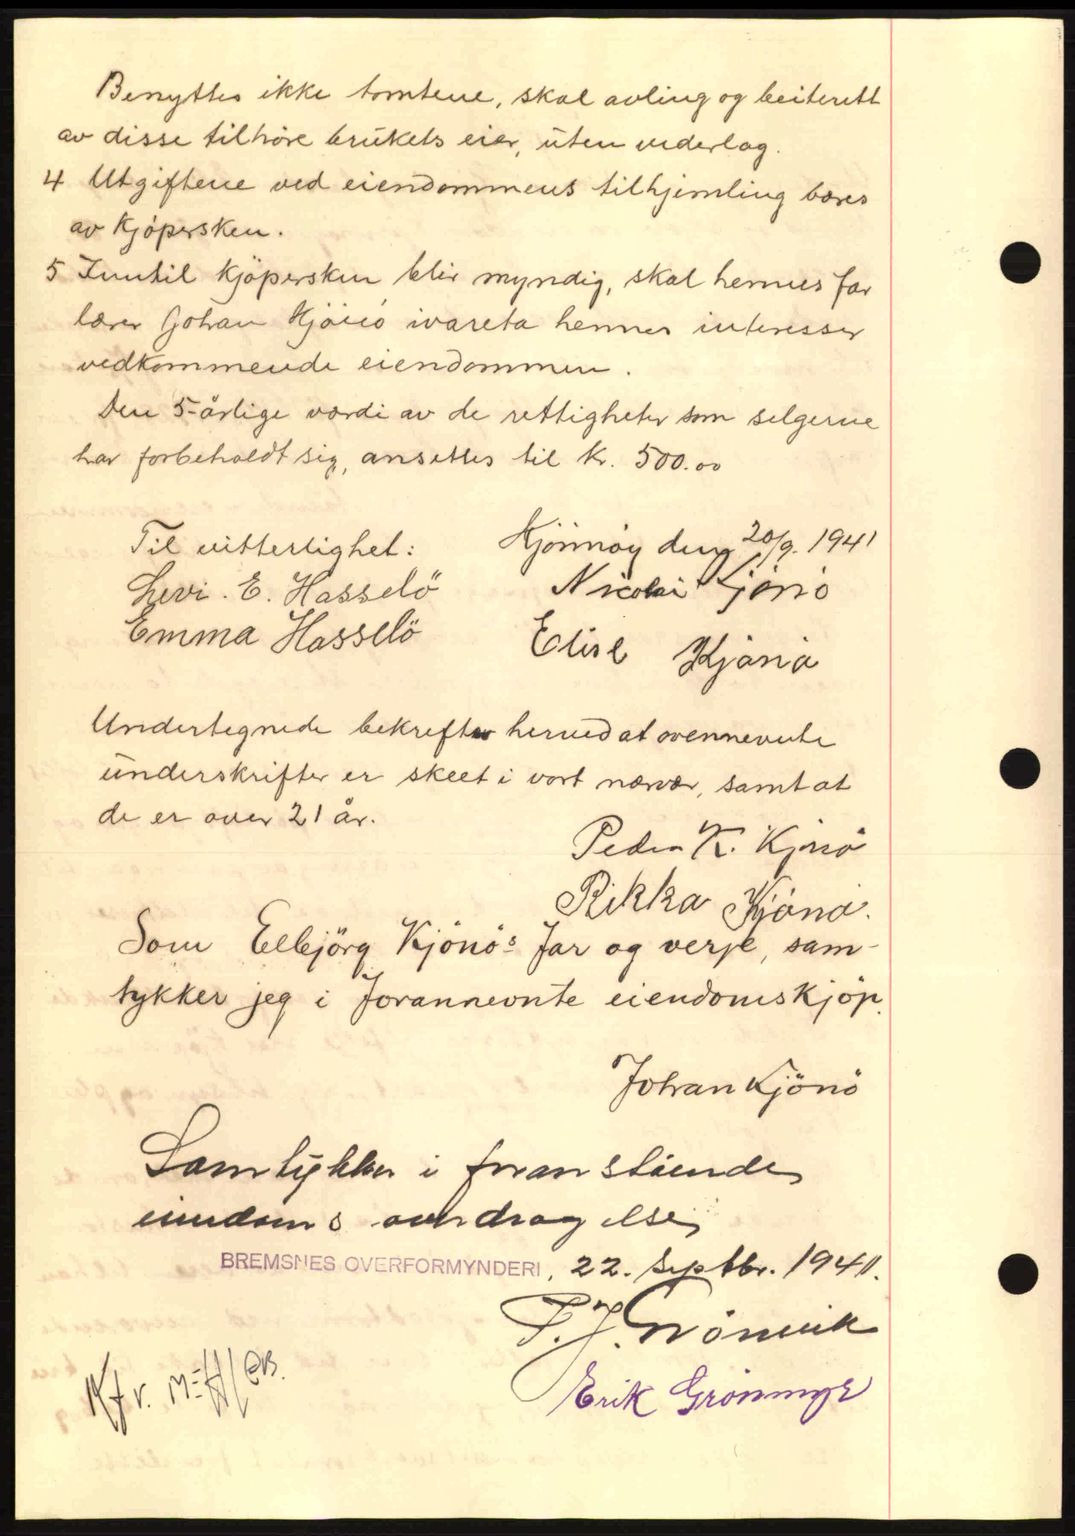 Benyttes ikke tomtene, skal avling og beiterett
av disse tilhöre brukets eier, uten vederlag.
4 Utgiftene ved eiendommens tilhjemling bæres
av kjöpersken.
5 Inntil kjöpersken blir myndig, skal hennes far
lærer Johan Kjönö ivareta hennes interesser
vedkommende eiendommen.
Den 5-årlige værdi av de rettigheter som selgerne
har forbeholdt sig, ansettes til kr. 500.00
Til vitterlighet:
Levi. E. Hasselö
Emma Hasselö
Kjönnöy den 20/9. 1941
Nicolai Kjönö
Elise Kjönö
Undertegnede bekrefter herved at ovennevnte
underskrifter er skeet i vort nærvær, samt at
de er over 21 år.
Peder K. Kjönö
Rikka Kjönö.
Som Elbjörg Kjönö's far og verje, sam-
tykker jeg i forannevnte eiendomskjöp.
Johan Kjönö
Samtykker i foranstående
eiendoms overdragelse,
BREMSNES OVERFORMYNDERI, 22. Septbr. 1941.
P. J. Grönvik
Erik Grönmyr
Kfr.